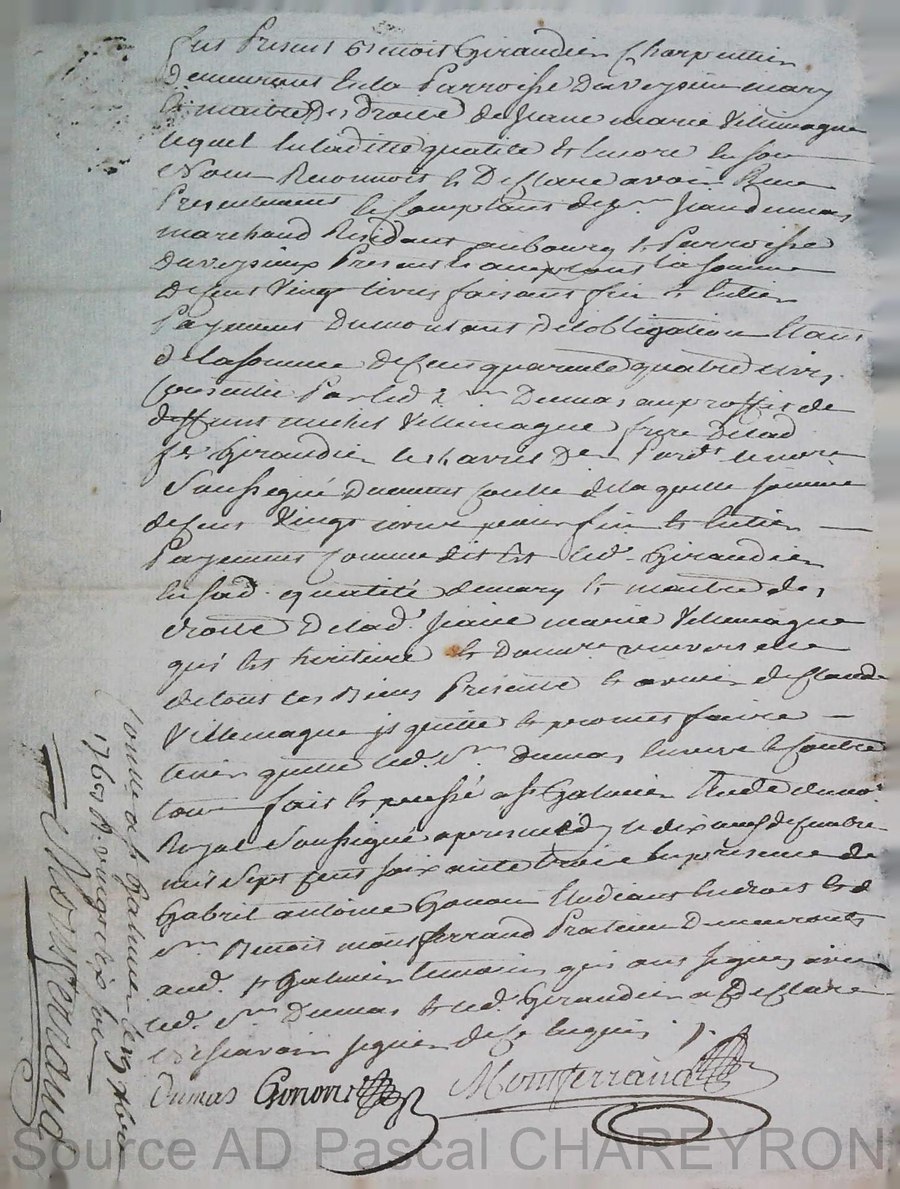 fut Présent Benoit Giraudier Charpentier
demeurant en la Parroisse de veyrieu mary
et maitre des droits de Jeane marie Villemagne
lequel en laditte qualité et encore en son
Nom Reconnoit et Declare avoir Receu
Presentement et Comptant de sr Jean dumas
marchand Résidant au bourg et Parroisse
de veyrieux Present et acceptant la somme
de Cent Vingt livres faisant fin et Entier
Payement du montant de l'obligation Etant
de la somme de Cent quarente quatre livres
Consentie Par led sr Dumas au proffit de
deffunt michel Villemagne frere de lad
fe Giraudier Notaire
Soussigné de laquelle somme
de Cent Vingt livres pour fin et Entier
Payement Comme dit Est led. Giraudier
En sad. qualité de mary et maitre des
droits de lad. Jeane marie Villemagne
qui est heritiere et Donatre universelle
de tout les Biens Présents et avenir de Claude
Villemagne quitte et promet faire
tenir quitte led. sr Dumas Envers et Contre
tous fait et passé a st Galmier Etude du not
Royal Soussigné apres midy le dix neuf decembre
mil sept Cent soixante trois En présence de
Gabriel antoine Gonon Etudiant En droit et de
sr Benoit montferrand Praticien Demeurants
aud. st Galmier temoins qui ont signés avec
led. sr Dumas et led. Giraudier a Declaré
ne sçavoir signer de Ce Enquis
Dumas Gonon Montferrand
Contlé a st Galmier le 29 xbre
1763 R. vingt six sols
Source AD Pascal CHAREYRON